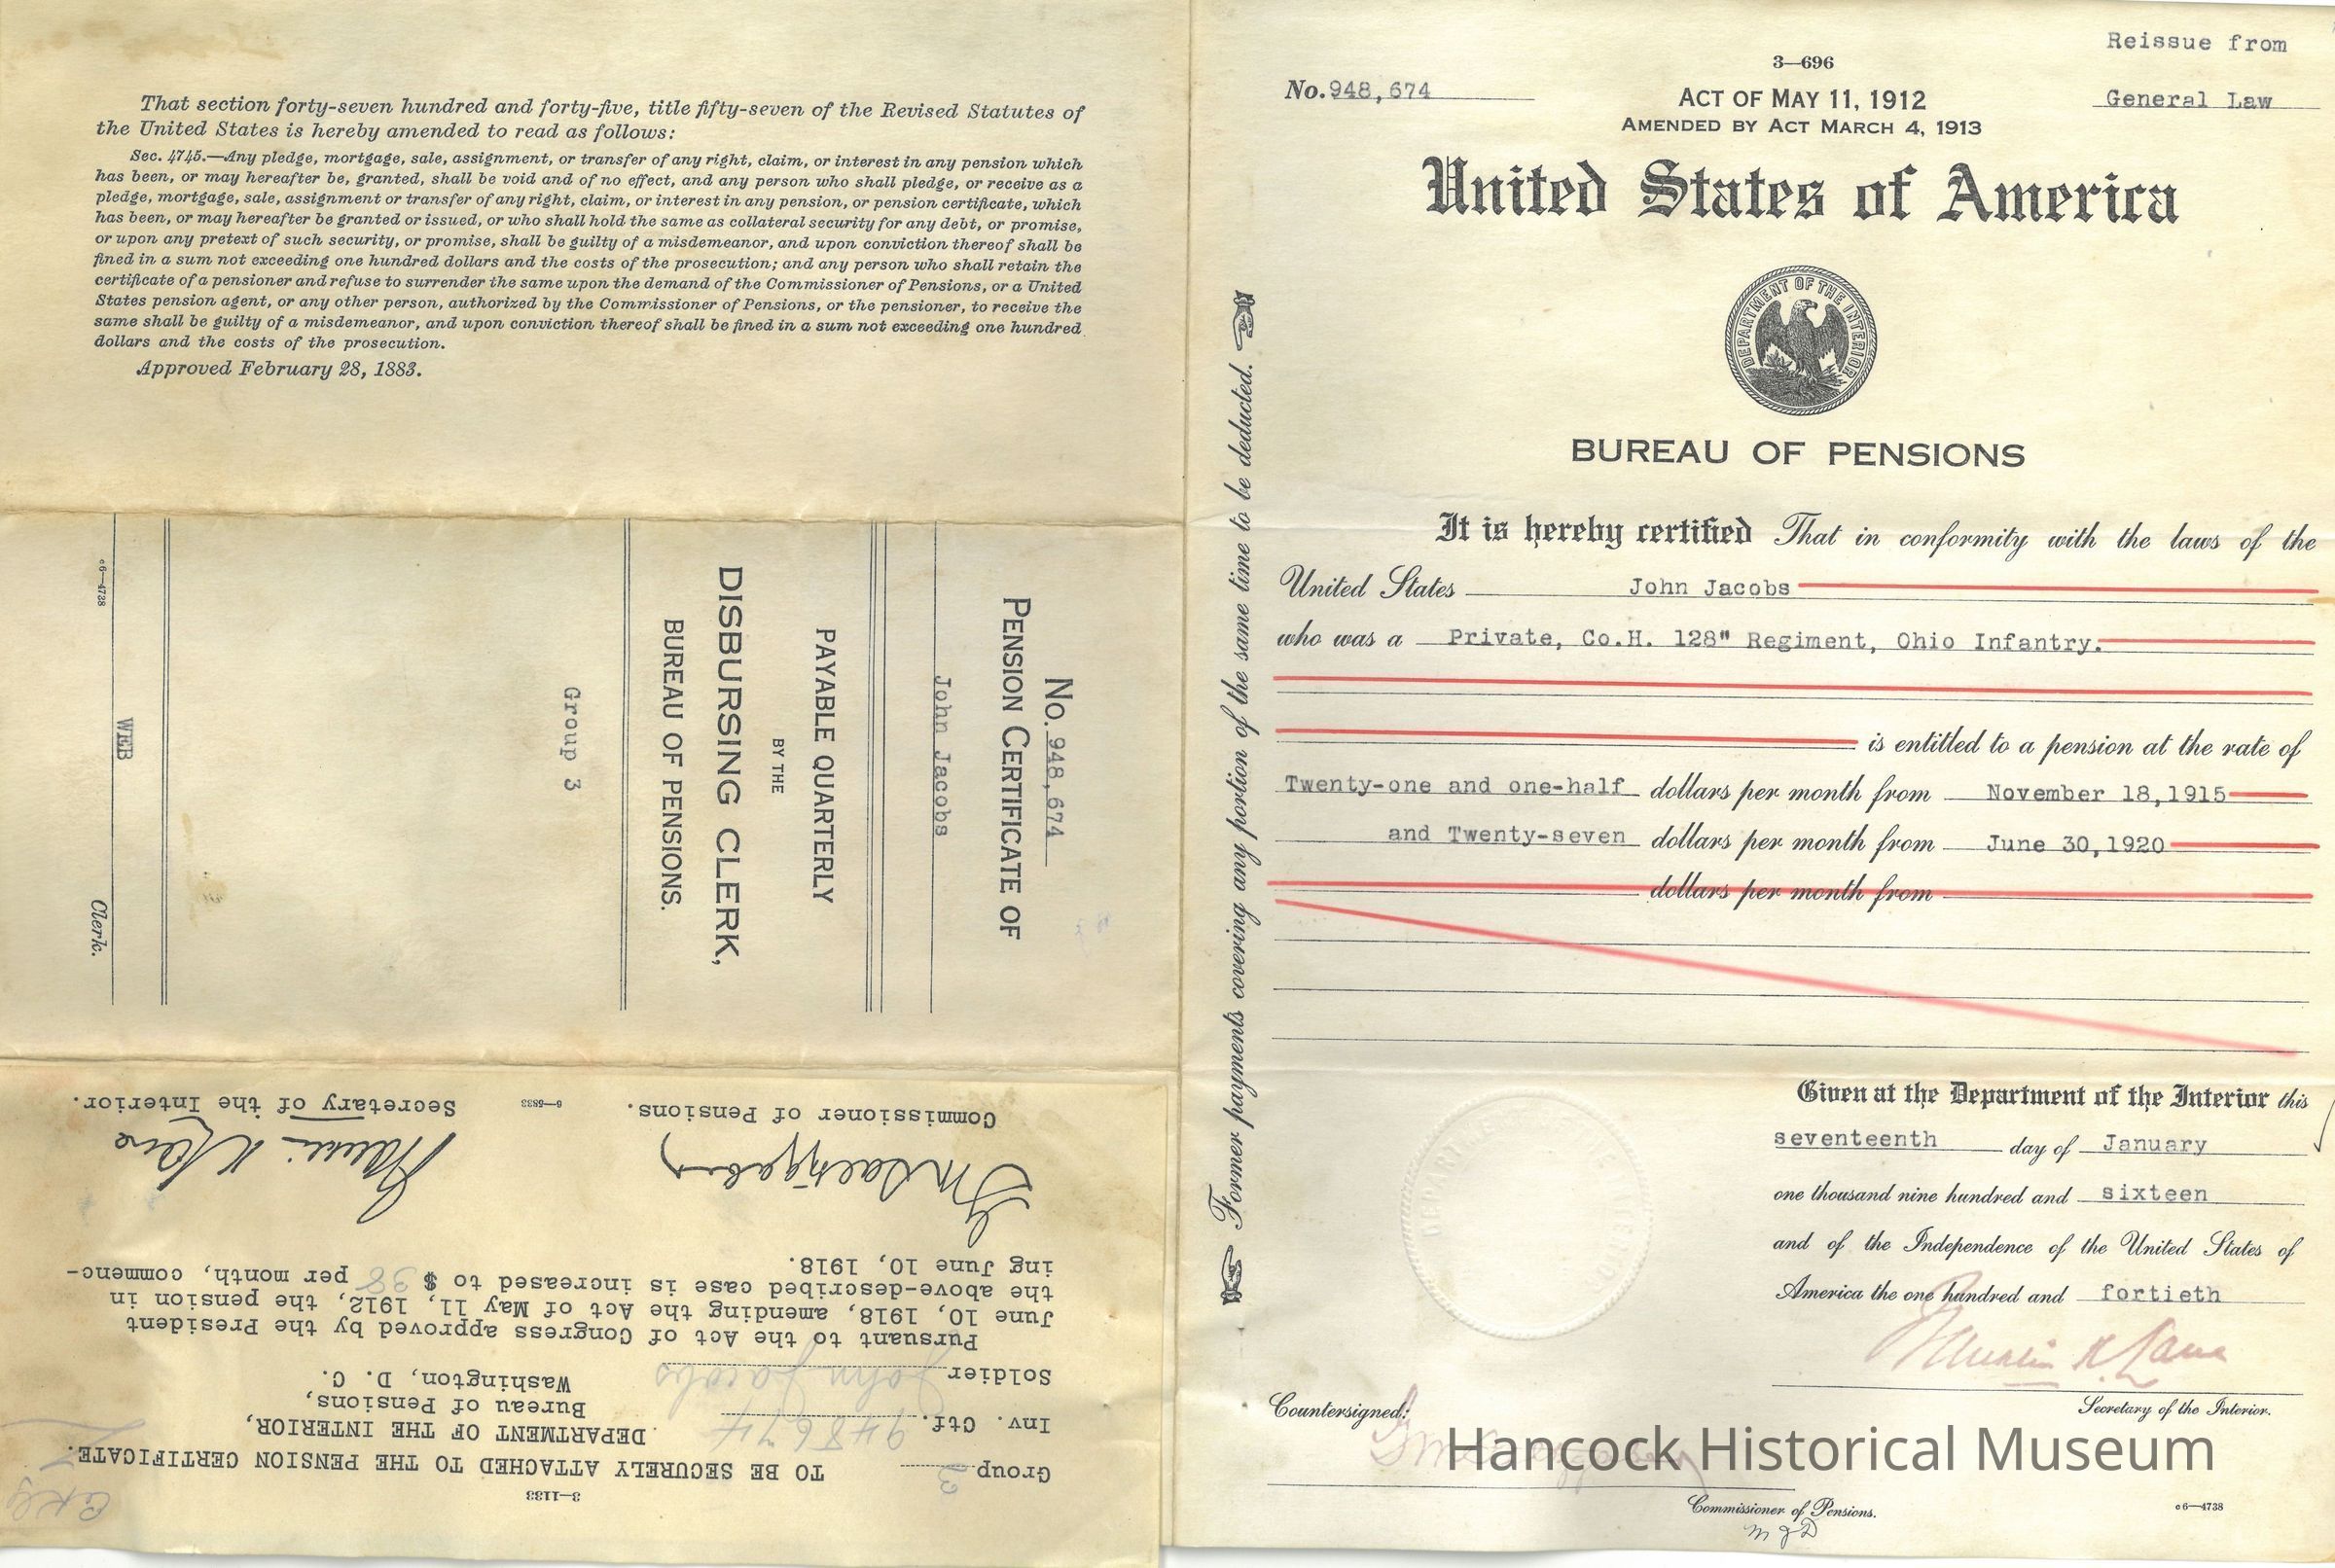 That section forty-seven hundred and forty-five, title fifty-seven of the Revised Statutes of
the United States is hereby amended to read as follows:
Sec. 4745.—Any pledge, mortgage, sale, assignment, or transfer of any right, claim, or interest in any pension which
has been, or may hereafter be, granted, shall be void and of no effect, and any person who shall pledge, or receive as a
pledge, mortgage, sale, assignment or transfer of any right, claim, or interest in any pension, or pension certificate, which
has been, or may hereafter be granted or issued, or who shall hold the same as collateral security for any debt, or promise,
or upon any pretext of such security, or promise, shall be guilty of a misdemeanor, and upon conviction thereof shall be
fined in a sum not exceeding one hundred dollars and the costs of the prosecution; and any person who shall retain the
certificate of a pensioner and refuse to surrender the same upon the demand of the Commissioner of Pensions, or a United
States pension agent, or any other person, authorized by the Commissioner of Pensions, or the pensioner, to receive the
same shall be guilty of a misdemeanor, and upon conviction thereof shall be fined in a sum not exceeding one hundred
dollars and the costs of the prosecution.
Approved February 28, 1883.
No. 948,674
PENSION CERTIFICATE OF
John Jacobs
PAYABLE QUARTERLY
BY THE
DISBURSING CLERK,
BUREAU OF PENSIONS.
Group 3
WEB
Clerk.
c6—4738
3—1133
TO BE SECURELY ATTACHED TO THE PENSION CERTIFICATE.
Group 3
DEPARTMENT OF THE INTERIOR,
Inv. Ctf. 948674
Bureau of Pensions,
Soldier John Jacobs
Washington, D. C.
Pursuant to the Act of Congress approved by the President
June 10, 1918, amending the Act of May 11, 1912, the pension in
the above-described case is increased to $ 38 per month, commenc-
ing June 10, 1918.
Commissioner of Pensions.
6—5833
Secretary of the Interior.
Reissue from
General Law
3—696
No. 948,674
ACT OF MAY 11, 1912
AMENDED BY ACT MARCH 4, 1913
United States of America
DEPARTMENT OF THE INTERIOR
BUREAU OF PENSIONS
It is hereby certified That in conformity with the laws of the
United States John Jacobs
who was a Private, Co.H. 128" Regiment, Ohio Infantry.
is entitled to a pension at the rate of
Twenty-one and one-half dollars per month from November 18,1915
and Twenty-seven dollars per month from June 30,1920
dollars per month from
Former payments covering any portion of the same time to be deducted.
Given at the Department of the Interior this
seventeenth day of January
one thousand nine hundred and sixteen
and of the Independence of the United States of
America the one hundred and fortieth
Franklin K Lane
Secretary of the Interior.
Countersigned:
Hancock Historical Museum
Commissioner of Pensions.
c6—4738